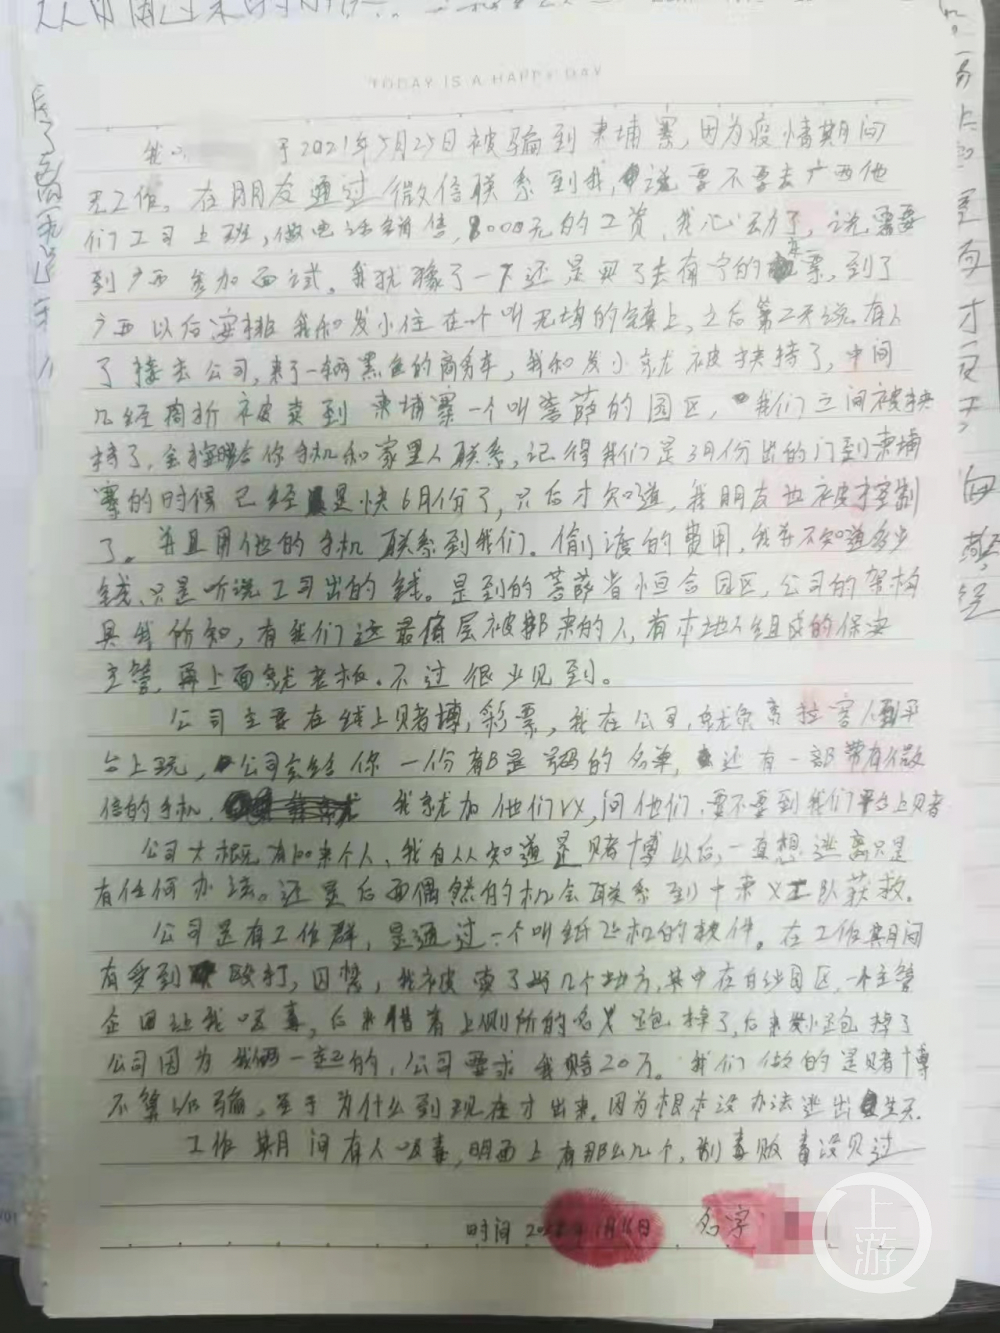 TODAY IS A HAPPY DAY
我 于2021年5月25日被骗到柬埔寨,因为疫情期间
无工作。在朋友通过微信联系到我,说要不要去广西他
们公司上班,做电话销售,8000元的工资,我心动了,说需要
到广西参加面试。我犹豫了一下还是买了去南宁的车票,到了
广西以后安排我和发小住在一个叫 的 上,之后第二天说有人
了接去公司,来了一辆黑色的商务车,我和发小就被挟持了,中间
几经周折被卖到柬埔寨一个叫菩萨的园区,我们之间被挟
持了,会 给你手机和家里人联系,记得我们是3月份出的门到柬埔
寨的时候已经是快6月份了,只后才知道,我朋友也被控制
了。并且用他的手机联系到我们。偷渡的费用,我并不知道多少
钱,只是听说公司出的钱。是到的菩萨省恒合园区,公司的架构
具我所知,有我们这最低层被骗来的人,有本地人组成的保安
主管,再上面就老板。不过很少见到。
公司主要在线上赌博,彩票,我在公司,就负责拉客人到平
台上玩,公司会给你一份都是号码的名单,还有一部带有微
信的手机, 我就加他们VX,问他们,要不要到我们平台上赌
公司大概有100来个人,我自从知道是赌博以后,一直想逃离只是
有任何办法。还是后面偶然的机会联系到中柬义工队获救。
公司是有工作群,是通过一个叫纸飞机的软件。在工作期间
有受到 殴打,囚禁,我被卖了 几个地方,其中在白沙园区,一个主管
企图让我吸毒,后来借着上厕所的名义跑掉了,后来发小跑掉了
公司因为我俩一起的,公司要求我赔20万。我们做的是赌博
不算诈骗,至于为什么到现在才出来,因为根本没办法逃出生天
工作期间有人吸毒,明面上有那么几个,制毒贩毒没见过
时间 2022年1月16日 名字
上游